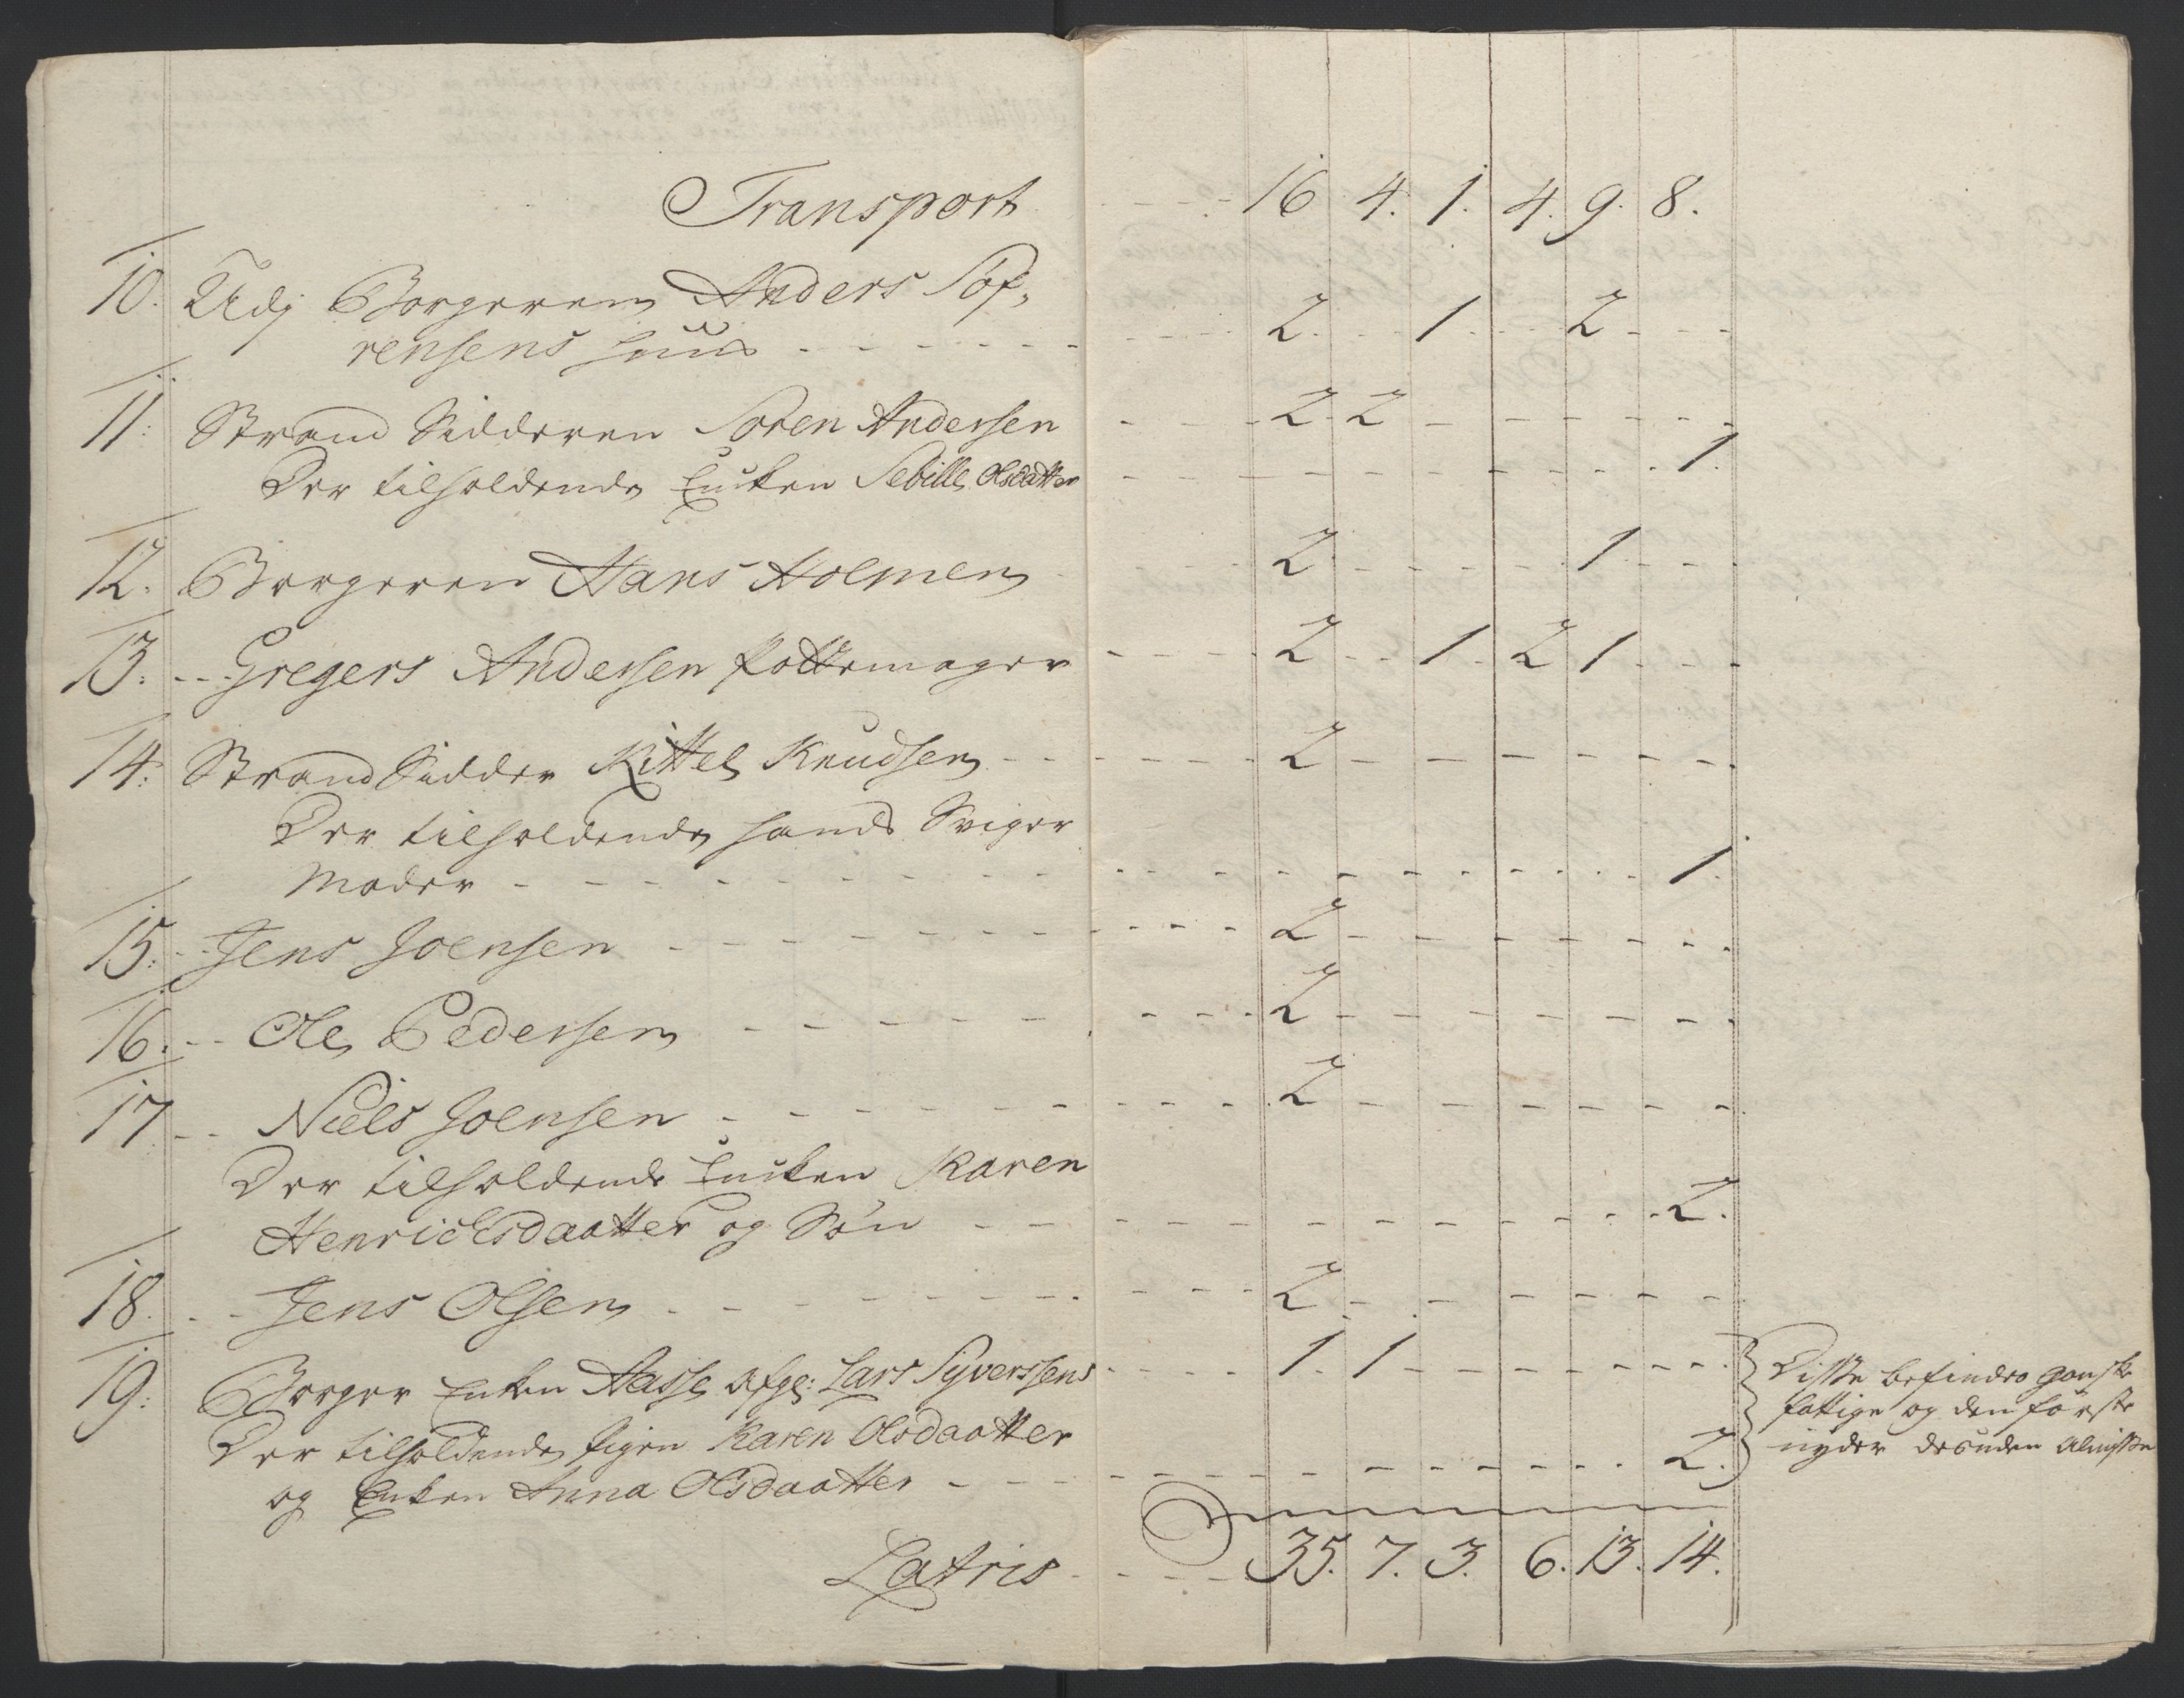 Transport - - - 16 4. 1. 4. 9. 8.
10. Udj Borgeren Anders Søf,
rensens Huus - - - 2. 1 2
11: Strand Sidderen Søren Andersen - - - 2. 2
Der tilholdende Enken Sebille Olsdatter - - - 1.
12. Borgeren Hans Holmen - - - 2 1
13. - - Gregers Andersen Pottemager - - - 2 1. 2 1
14: Strand Sidder Kittel Knudsen - - - 2
Der tilholdende hands Sviger
Moder - - - 1.
15: - Jens Joensen - - - 2
16. - - Ole Pedersen - - - 2
17 - - Niels Joensen - - - 2
Der tilholdende Enken Karen
Henrichsdaatter og Søn - - - 2.
18. - - Jens Olsen - - - 2
19: Borger Enken Aasse afg: Lars Syverssens - - - 1. 1
Der tilholdende Pigen Karen Olsdaatter
og Enken Anna Olsdaatter - - - 2.
Disse befindes ganske
fattige og den første
nyder desuden Almisse
Latris - - - 35. 7. 3. 6. 13. 14.